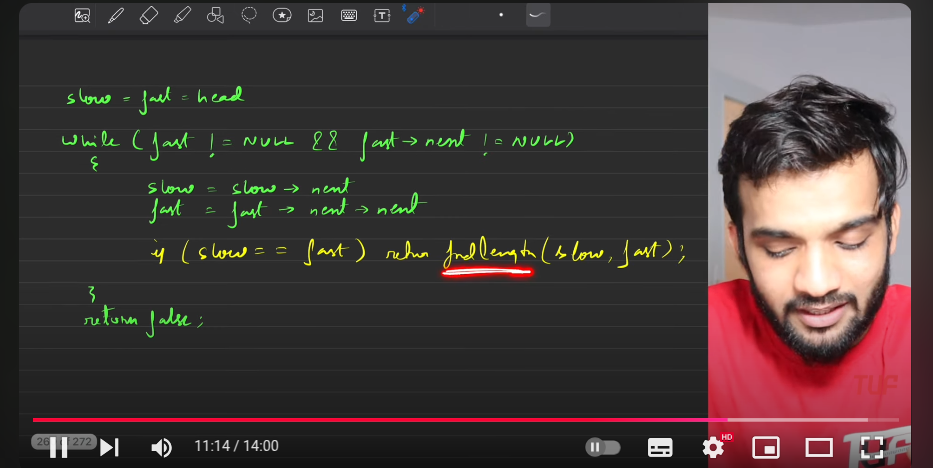 slow = fast = head
while ( fast != NULL && fast → next != NULL)
{
slow = slow → next
fast = fast → next → next
if ( slow == fast) return findlength(slow, fast);
}
return false;
TUF
272
11:14 / 14:00
HD